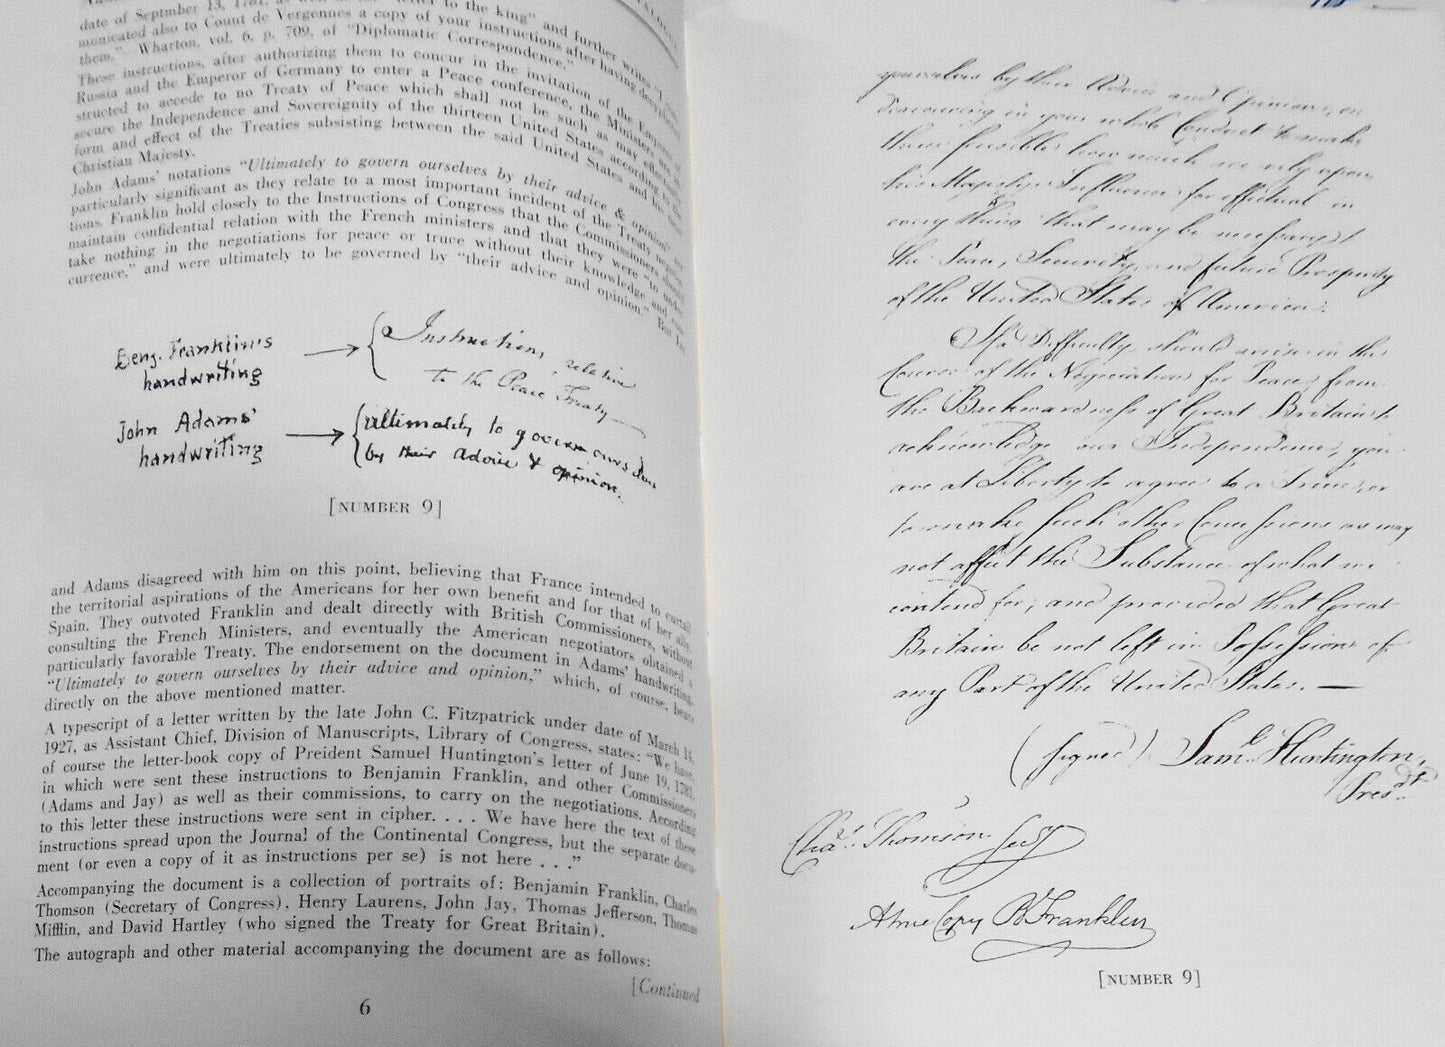 TALOGUE
date of Septmber 13, 1781, as well as the "letter to the king" and further writes "I com-
municated also to Count de Vergennes a copy of your instructions after having decyphered
them." Wharton, vol. 6, p. 709, of "Diplomatic Correspondence."
These instructions, after authorizing them to concur in the invitation of the Empress of
Russia and the Emperor of Germany to enter a Peace conference, the Ministers are in-
structed to accede to no Treaty of Peace which shall not be such as may effectually
secure the Independence and Sovereignity of the thirteen United States according to the
form and effect of the Treaties subsisting between the said United States and his most
Christian Majesty.
John Adams' notations "Ultimately to govern ourselves by their advice & opinion" are
particularly significant as they relate to a most important incident of the Treaty negotia-
tions. Franklin hold closely to the Instructions of Congress that the Commissioners should
maintain confidential relation with the French ministers and that they were "to under-
take nothing in the negotiations for peace or truce without their knowledge and con-
currence," and were ultimately to be governed by "their advice and opinion." But Jay
Benj. Franklin's
handwriting
Instructions, relative
to the Peace Treaty—
John Adams'
handwriting
ultimately to govern ourselves
by their advice & opinion.
[NUMBER 9]
and Adams disagreed with him on this point, believing that France intended to curtail
the territorial aspirations of the Americans for her own benefit and for that of her ally,
Spain. They outvoted Franklin and dealt directly with British Commissioners, without
consulting the French Ministers, and eventually the American negotiators obtained a
particularly favorable Treaty. The endorsement on the document in Adams' handwriting,
"Ultimately to govern ourselves by their advice and opinion," which, of course, bears
directly on the above mentioned matter.
A typescript of a letter written by the late John C. Fitzpatrick under date of March 14,
1927, as Assistant Chief, Division of Manuscripts, Library of Congress, states: "We have,
of course the letter-book copy of Preident Samuel Huntington's letter of June 19, 1781,
in which were sent these instructions to Benjamin Franklin, and other Commissioners
(Adams and Jay) as well as their commissions, to carry on the negotiations. According
to this letter these instructions were sent in cipher. . . . We have here the text of these
instructions spread upon the Journal of the Continental Congress, but the separate docu-
ment (or even a copy of it as instructions per se) is not here . . ."
Accompanying the document is a collection of portraits of: Benjamin Franklin, Charles
Thomson (Secretary of Congress), Henry Laurens, John Jay, Thomas Jefferson, Thomas
Mifflin, and David Hartley (who signed the Treaty for Great Britain).
The autograph and other material accompanying the document are as follows:
[Continued
6
yourselves by their Advice and Opinion, en
deavouring in your whole Conduct to make
them sensible how much we rely upon
his Majesty's Influence for effectual in
every thing that may be necessary to
the Peace, Security, and future Prosperity
of the United States of America.
If a Difficulty should arise in the
Course of the Negociation for Peace, from
the Backwardness of Great Britain to
acknowledge our Independence, you
are at Liberty to agree to a Truce, or
to make such other Concessions as may
not affect the Substance of what we
contend for; and provided that Great
Britain be not left in Possession of
any Part of the United States. —
(signed) Saml. Huntington,
Presdt.
Chas. Thomson Secy
A true Copy B Franklin
[NUMBER 9]